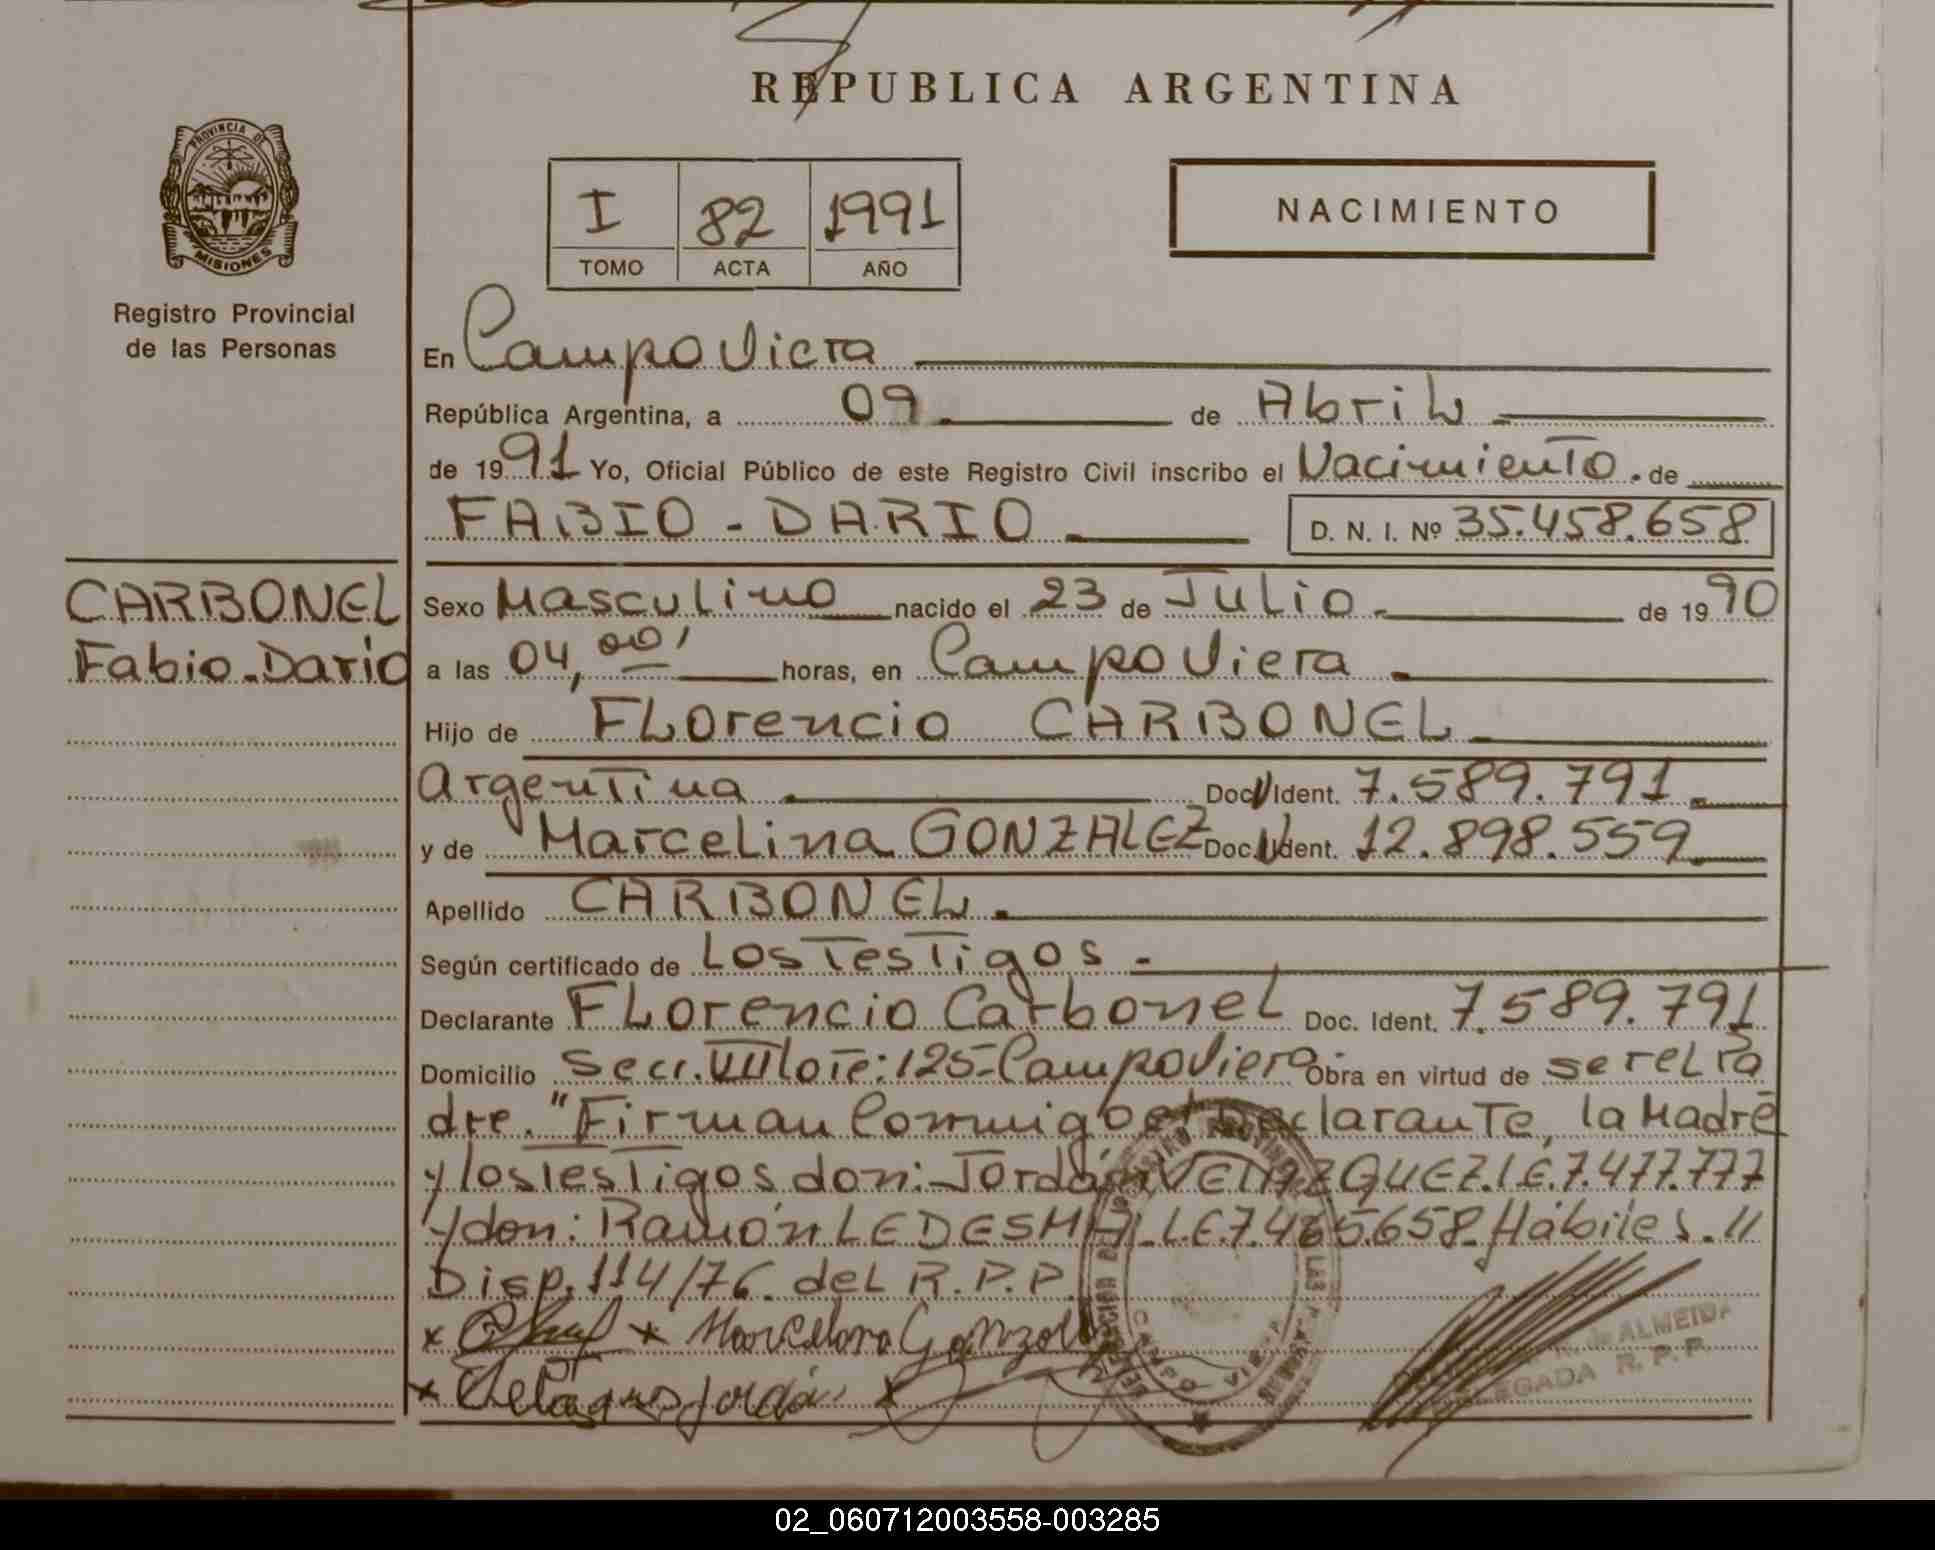 REPUBLICA ARGENTINA
PROVINCIA DE
MISIONES
Registro Provincial
de las Personas
I 82 1991
TOMO ACTA AÑO
NACIMIENTO
En Campo Viera
República Argentina, a 09 de Abril
de 1991 Yo, Oficial Público de este Registro Civil inscribo el Nacimiento. de
FABIO - DARIO D. N. I. Nº 35.458.658
CARBONEL
Fabio-Dario
Sexo Masculino nacido el 23 de Julio de 1990
a las 04,00' horas, en Campo Viera
Hijo de Florencio CARBONEL
Argentina Doc. Ident. 7.589.791.
y de Marcelina GONZALEZ Doc. Ident. 12.898.559
Apellido CARBONEL.
Según certificado de Los Testigos.
Declarante Florencio Carbonel Doc. Ident. 7.589.791
Domicilio Secc. VIII lote: 125-Campo Viera. Obra en virtud de ser el Pa
dre. "Firman Conmigo el Declarante, la Madre
y los Testigos don: Jordán VELAZQUEZ. L.E. 7.477.777
y don: Ramón LEDESMA L.E. 7.465.658. Hábiles. "
Disp. 114/76. del R.P.P.
x x Marcelina Gonzalez
x Jordán x
de ALMEIDA
DELEGADA R. P. P.
02_060712003558-003285